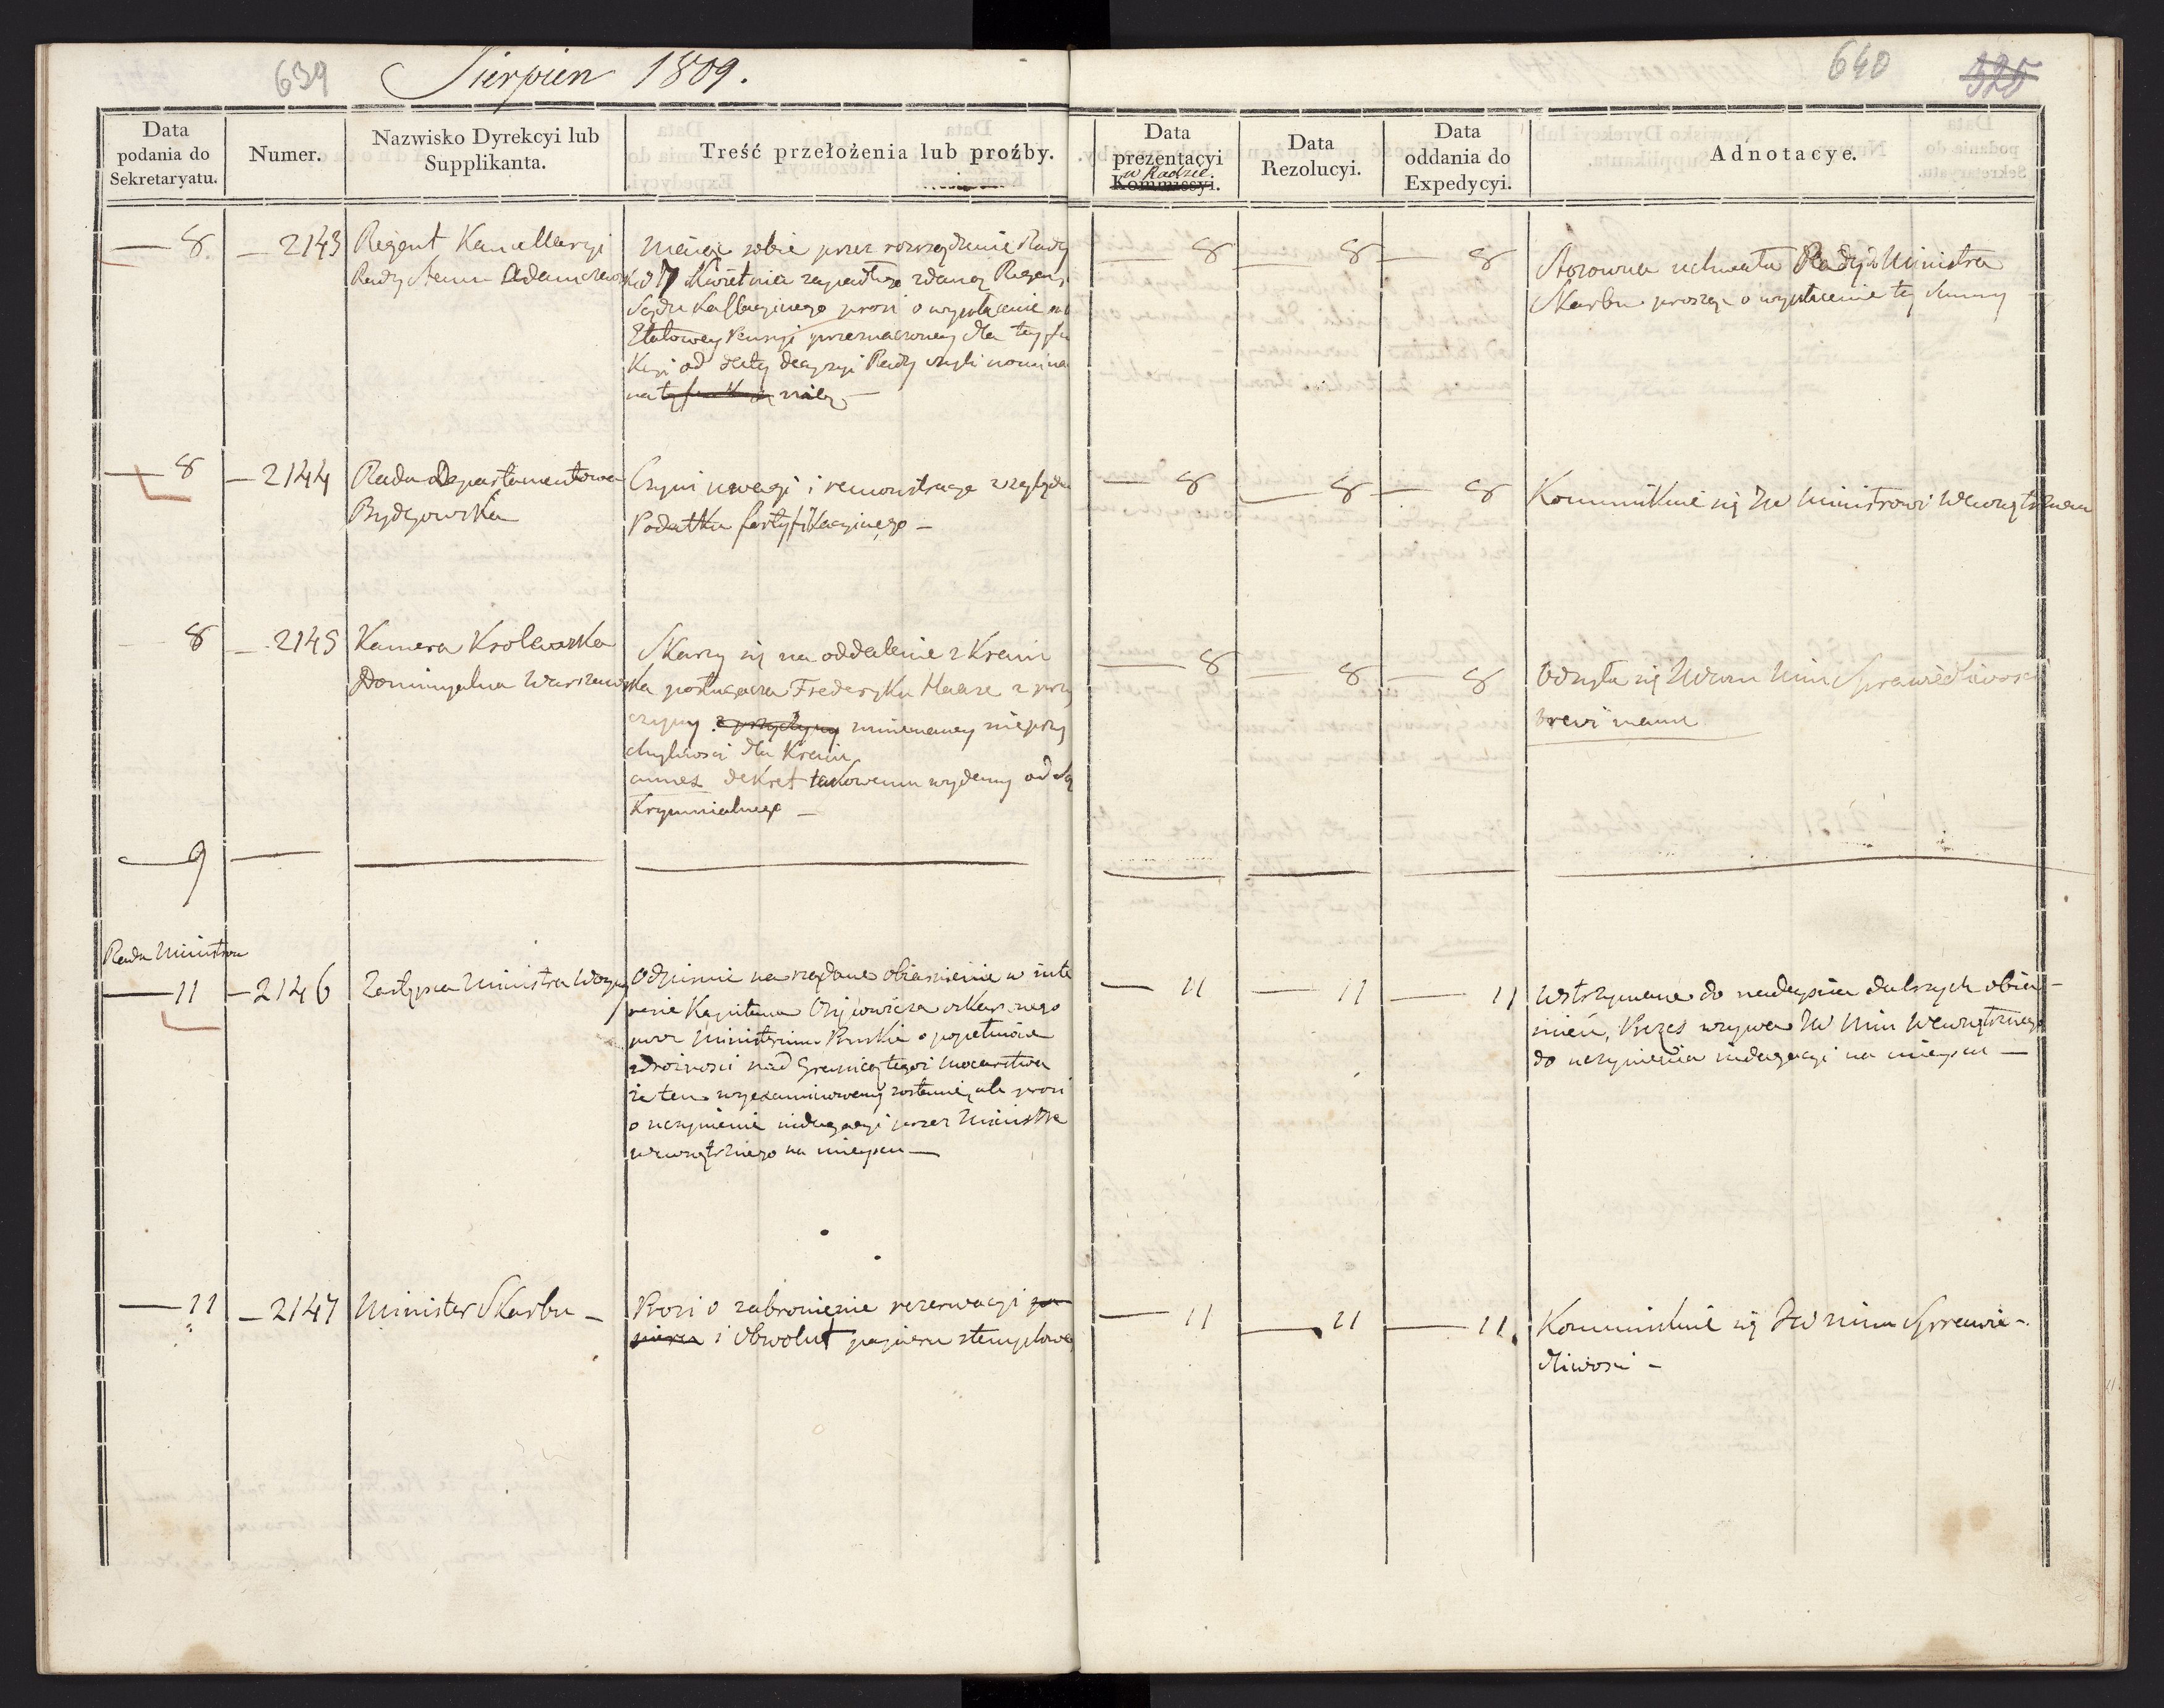 639
Sierpień 1809.
640
325
Data podania do Sekretaryatu.
Numer.
Nazwisko Dyrekcyi lub Supplikanta.
Treść przełożenia lub proźby.
Data prezentacyi Kommissyi.
w Radzie.
Data Rezolucyi.
Data oddania do Expedycyi.
Adnotacye.
— 8. — 2143 Regent Kancellaryi
Rady Stanu Adamczewski
Mając sobie przez rozrządzenie Rady
d 7 Kwietnia zapadłego zdaną Regen
Sądu Kassacyinego prosi o wypłacenie
Etatowey Pensyi przeznaczoney dla tey fu
kcyi od daty decyzyi Rady czyli nomina
na tę funkcyą niey —
— 8 — 8 — 8
Stosowna uchwała Rady i Ministra
Skarbu prosząc o wypłacenie tey Summy
— 8 — 2144 Rada Departamentowa
Bydgowska
Czyni uwagi i remonstracye względem
Podatku fortyfikacyinego —
— 8 — 8 — 8
Kommunikuie się JW Ministrowi Wewnętrznemu
8 — 2145 Kamera Krolewska
Dominyalna Warszawska
Skarzy się na oddalenie z Kraiu
posługacza Frederyka Haase z przy
czyny z przyczyny mniemaney nieprzy
chylności dla Kraiu
annex dekret takowemu wydany od Są
Kryminalnego —
— 8 — 8 — 8
Odsyła się JWmu Min Sprawiedliwosci
brevi manu
— 9 —
Rada Ministrow
— 11 — 2146 Zastępca Ministra Woyny
Odpisuie na rządane obiasnienie w inte
resie Kapitana oskarzonego
przez Ministerium Pruskie o popełnione
zdrożności nad Granicą tegoż Mocarstwa
że ten wyexaminowany zostanie, ale prosi
o uczynienie indagacyi przez Ministra
wewnętrznego na mieyscu —
— 11 — 11 — 11
Wstrzymane do nadeyścia dalszych obia-
śnień, Prezes wzywa JW Min Wewnętrznego
do uczynienia indagacyi na mieyscu —
— 11 — 2147 Minister Skarbu —
Prosi o zabronienie rezerwacyi pa
pieru i Obwolut papieru stemplowe
— 11 — 11 — 11.
Kommunikuie się JW Min Sprawie-
dliwosci —